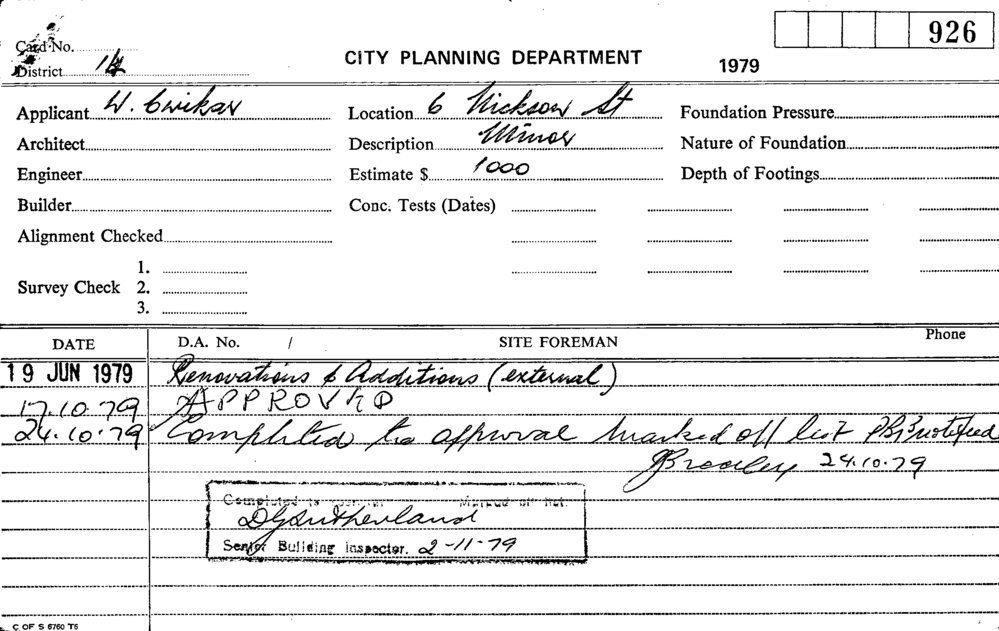 Card No.
926
District 14
CITY PLANNING DEPARTMENT
1979
Applicant W. Cwikar
Location 6 Hickson St
Foundation Pressure
Architect
Description Minor
Nature of Foundation
Engineer
Estimate $ 1000
Depth of Footings
Builder
Conc. Tests (Dates)
Alignment Checked
Survey Check
1.
2.
3.
DATE
D.A. No. /
SITE FOREMAN
Phone
19 JUN 1979 Renovations & Additions (external)
17.10.79 APPROVED
24.10.79 Completed to approval marked off list PBI notified
24.10.79
Completed to Marked off list.
DGSutherland
Senior Building Inspector. 2-11-79
C OF S 6760 T6